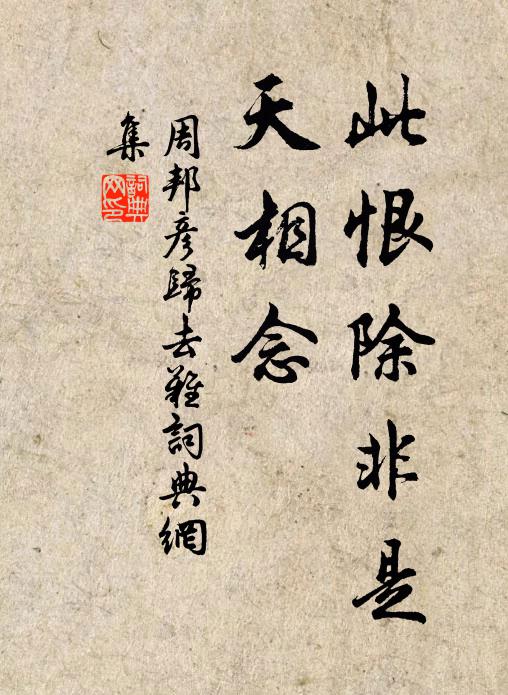 此恨除非是
天相念
周邦彦歸去難詞典網
集
詞典
网印